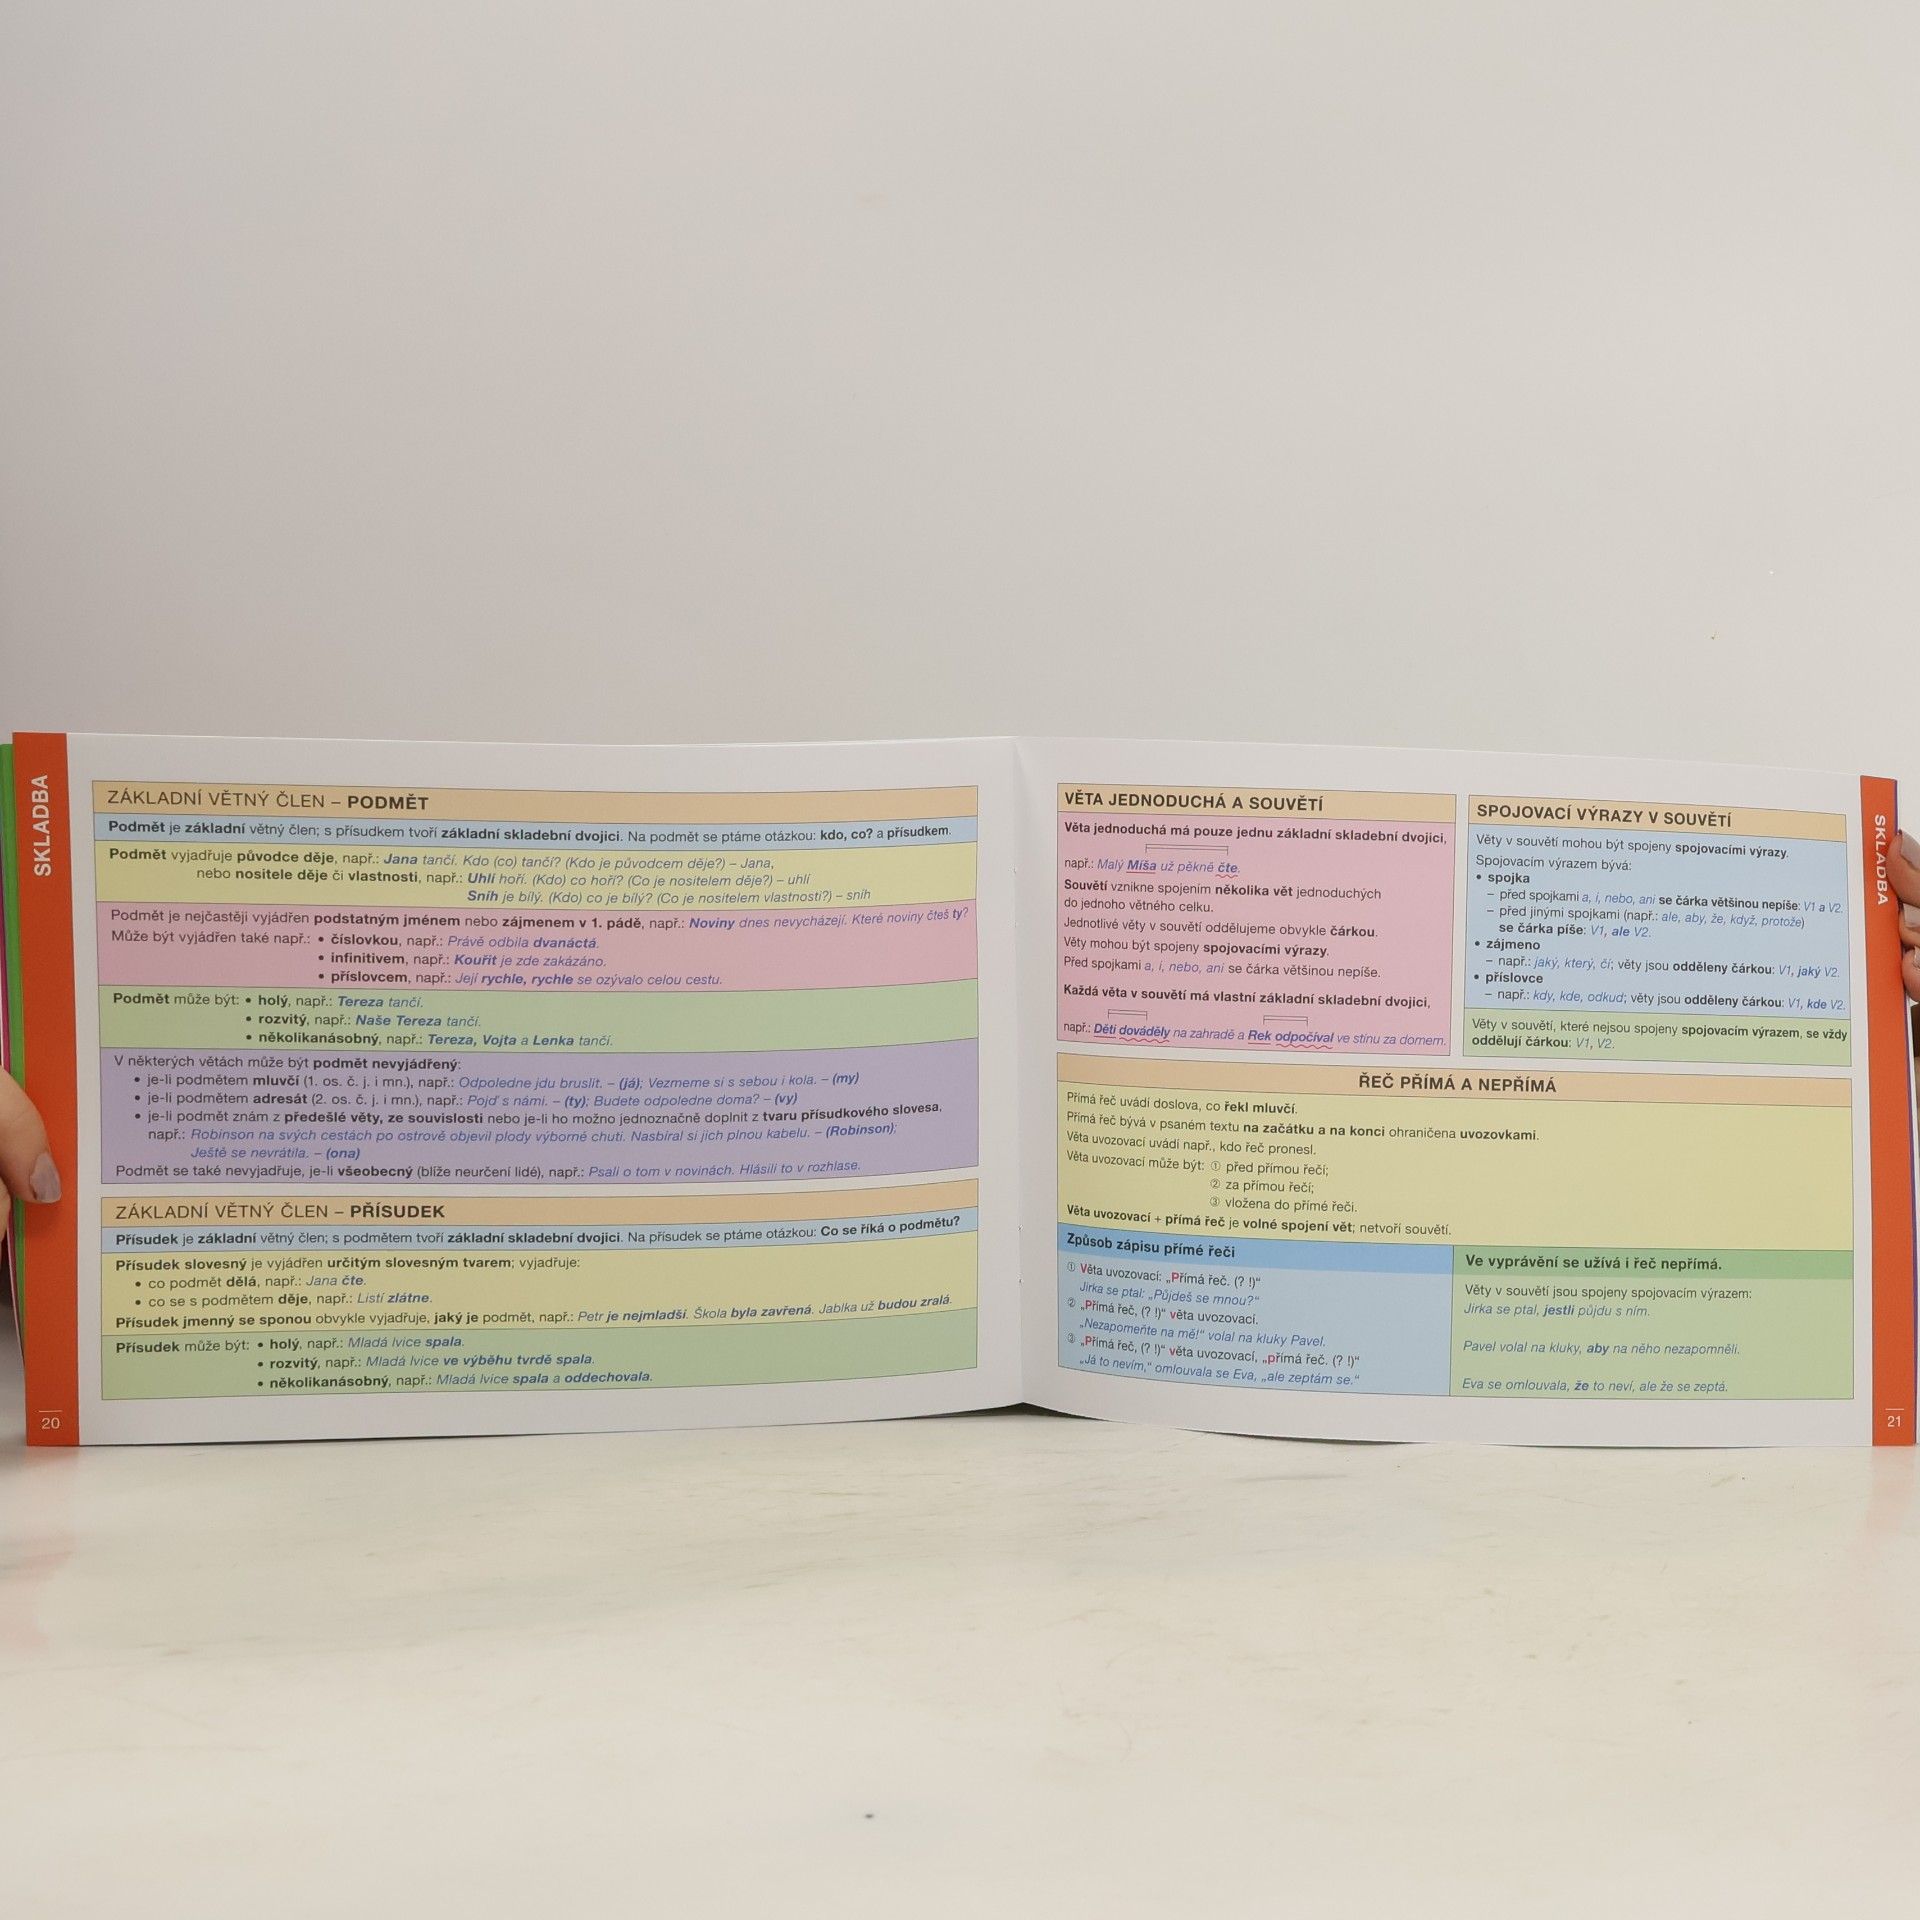 SKLADBA
ZÁKLADNÍ VĚTNÝ ČLEN – PODMĚT
Podmět je základní větný člen; s přísudkem tvoří základní skladební dvojici. Na podmět se ptáme otázkou: kdo, co? a přísudkem.
Podmět vyjadřuje původce děje, např.: Jana tančí. Kdo (co) tančí? (Kdo je původcem děje?) – Jana,
nebo nositele děje či vlastnosti, např.: Uhlí hoří. (Kdo) co hoří? (Co je nositelem děje?) – uhlí
Sníh je bílý. (Kdo) co je bílý? (Co je nositelem vlastnosti?) – sníh
Podmět je nejčastěji vyjádřen podstatným jménem nebo zájmenem v 1. pádě, např.: Noviny dnes nevycházejí. Které noviny čteš ty?
Může být vyjádřen také např.: • číslovkou, např.: Právě odbila dvanáctá.
• infinitivem, např.: Kouřit je zde zakázáno.
• příslovcem, např.: Její rychle, rychle se ozývalo celou cestu.
Podmět může být: • holý, např.: Tereza tančí.
• rozvitý, např.: Naše Tereza tančí.
• několikanásobný, např.: Tereza, Vojta a Lenka tančí.
V některých větách může být podmět nevyjádřený:
• je-li podmětem mluvčí (1. os. č. j. i mn.), např.: Odpoledne jdu bruslit. – (já); Vezmeme si s sebou i kola. – (my)
• je-li podmětem adresát (2. os. č. j. i mn.), např.: Pojď s námi. – (ty); Budete odpoledne doma? – (vy)
• je-li podmět znám z předešlé věty, ze souvislosti nebo je-li ho možno jednoznačně doplnit z tvaru přísudkového slovesa,
např.: Robinson na svých cestách po ostrově objevil plody výborné chuti. Nasbíral si jich plnou kabelu. – (Robinson);
Ještě se nevrátila. – (ona)
Podmět se také nevyjadřuje, je-li všeobecný (blíže neurčení lidé), např.: Psali o tom v novinách. Hlásili to v rozhlase.
ZÁKLADNÍ VĚTNÝ ČLEN – PŘÍSUDEK
Přísudek je základní větný člen; s podmětem tvoří základní skladební dvojici. Na přísudek se ptáme otázkou: Co se říká o podmětu?
Přísudek slovesný je vyjádřen určitým slovesným tvarem; vyjadřuje:
• co podmět dělá, např.: Jana čte.
• co se s podmětem děje, např.: Listí zlátne.
Přísudek jmenný se sponou obvykle vyjadřuje, jaký je podmět, např.: Petr je nejmladší. Škola byla zavřená. Jablka už budou zralá.
Přísudek může být: • holý, např.: Mladá lvice spala.
• rozvitý, např.: Mladá lvice ve výběhu tvrdě spala.
• několikanásobný, např.: Mladá lvice spala a oddechovala.
20
VĚTA JEDNODUCHÁ A SOUVĚTÍ
Věta jednoduchá má pouze jednu základní skladební dvojici,
např.: Malý Míša už pěkně čte.
Souvětí vznikne spojením několika vět jednoduchých
do jednoho větného celku.
Jednotlivé věty v souvětí oddělujeme obvykle čárkou.
Věty mohou být spojeny spojovacími výrazy.
Před spojkami a, i, nebo, ani se čárka většinou nepíše.
Každá věta v souvětí má vlastní základní skladební dvojici,
např.: Děti dováděly na zahradě a Rek odpočíval ve stínu za domem.
SPOJOVACÍ VÝRAZY V SOUVĚTÍ
Věty v souvětí mohou být spojeny spojovacími výrazy.
Spojovacím výrazem bývá:
• spojka
– před spojkami a, i, nebo, ani se čárka většinou nepíše: V1 a V2.
– před jinými spojkami (např.: ale, aby, že, když, protože)
se čárka píše: V1, ale V2.
• zájmeno
– např.: jaký, který, čí; věty jsou odděleny čárkou: V1, jaký V2.
• příslovce
– např.: kdy, kde, odkud; věty jsou odděleny čárkou: V1, kde V2.
Věty v souvětí, které nejsou spojeny spojovacím výrazem, se vždy
oddělují čárkou: V1, V2.
ŘEČ PŘÍMÁ A NEPŘÍMÁ
Přímá řeč uvádí doslova, co řekl mluvčí.
Přímá řeč bývá v psaném textu na začátku a na konci ohraničena uvozovkami.
Věta uvozovací uvádí např., kdo řeč pronesl.
Věta uvozovací může být: ① před přímou řečí;
② za přímou řečí;
③ vložena do přímé řeči.
Věta uvozovací + přímá řeč je volné spojení vět; netvoří souvětí.
Způsob zápisu přímé řeči
① Věta uvozovací: „Přímá řeč. (? !)“
Jirka se ptal: „Půjdeš se mnou?“
② „Přímá řeč, (? !)“ věta uvozovací.
„Nezapomeňte na mě!“ volal na kluky Pavel.
③ „Přímá řeč, (? !)“ věta uvozovací, „přímá řeč. (? !)“
„Já to nevím,“ omlouvala se Eva, „ale zeptám se.“
Ve vyprávění se užívá i řeč nepřímá.
Věty v souvětí jsou spojeny spojovacím výrazem:
Jirka se ptal, jestli půjdu s ním.
Pavel volal na kluky, aby na něho nezapomněli.
Eva se omlouvala, že to neví, ale že se zeptá.
SKLADBA
21